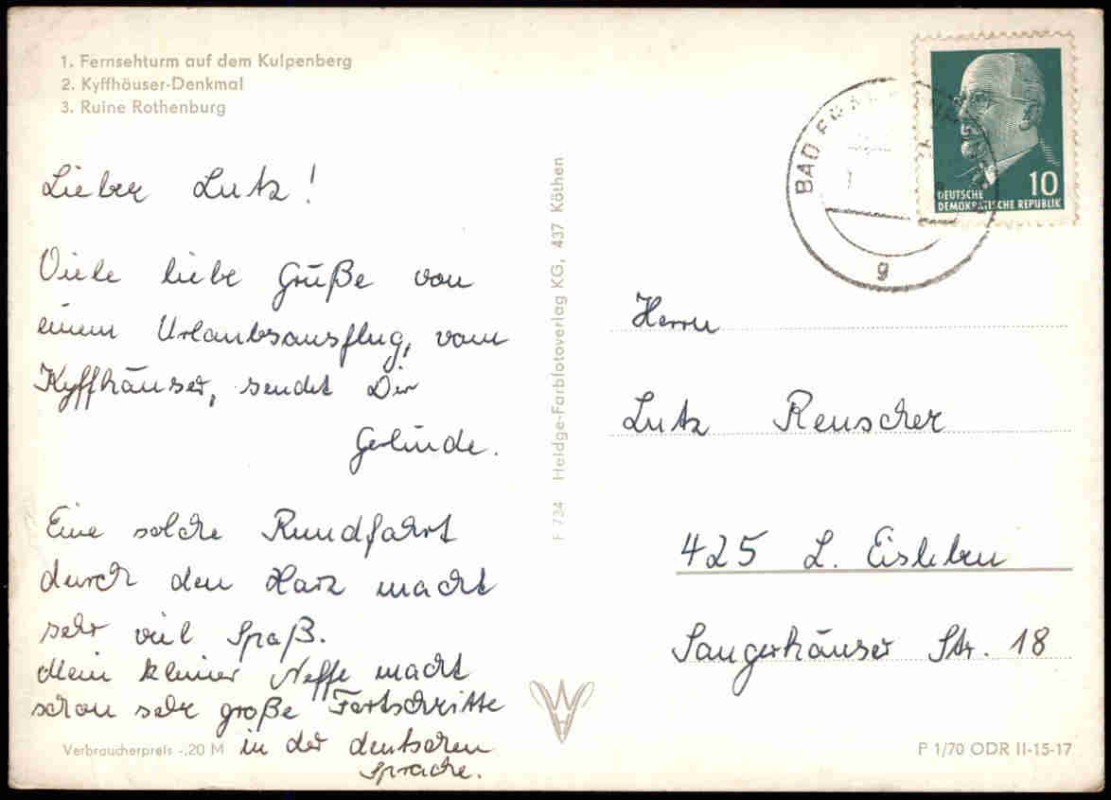 1. Fernsehturm auf dem Kulpenberg
2. Kyffhäuser-Denkmal
3. Ruine Rothenburg
Lieber Lutz!
Viele liebe Grüße von
einem Urlaubsausflug, vom
Kyffhäuser, sendet Dir
Gelinde.
Eine solche Rundfahrt
durch den Harz macht
sehr viel Spaß.
Mein kleiner Neffe macht
schon sehr große Fortschritte
in der deutschen
Sprache.
Verbraucherpreis -,20 M
F 734 Heldge-Farbfotoverlag KG, 437 Köthen
BAD
g
10
DEUTSCHE
DEMOKRATISCHE REPUBLIK
Herrn
Lutz Reuscher
425 L. Eisleben
Sangerhäuser Str. 18
P 1/70 ODR II-15-17